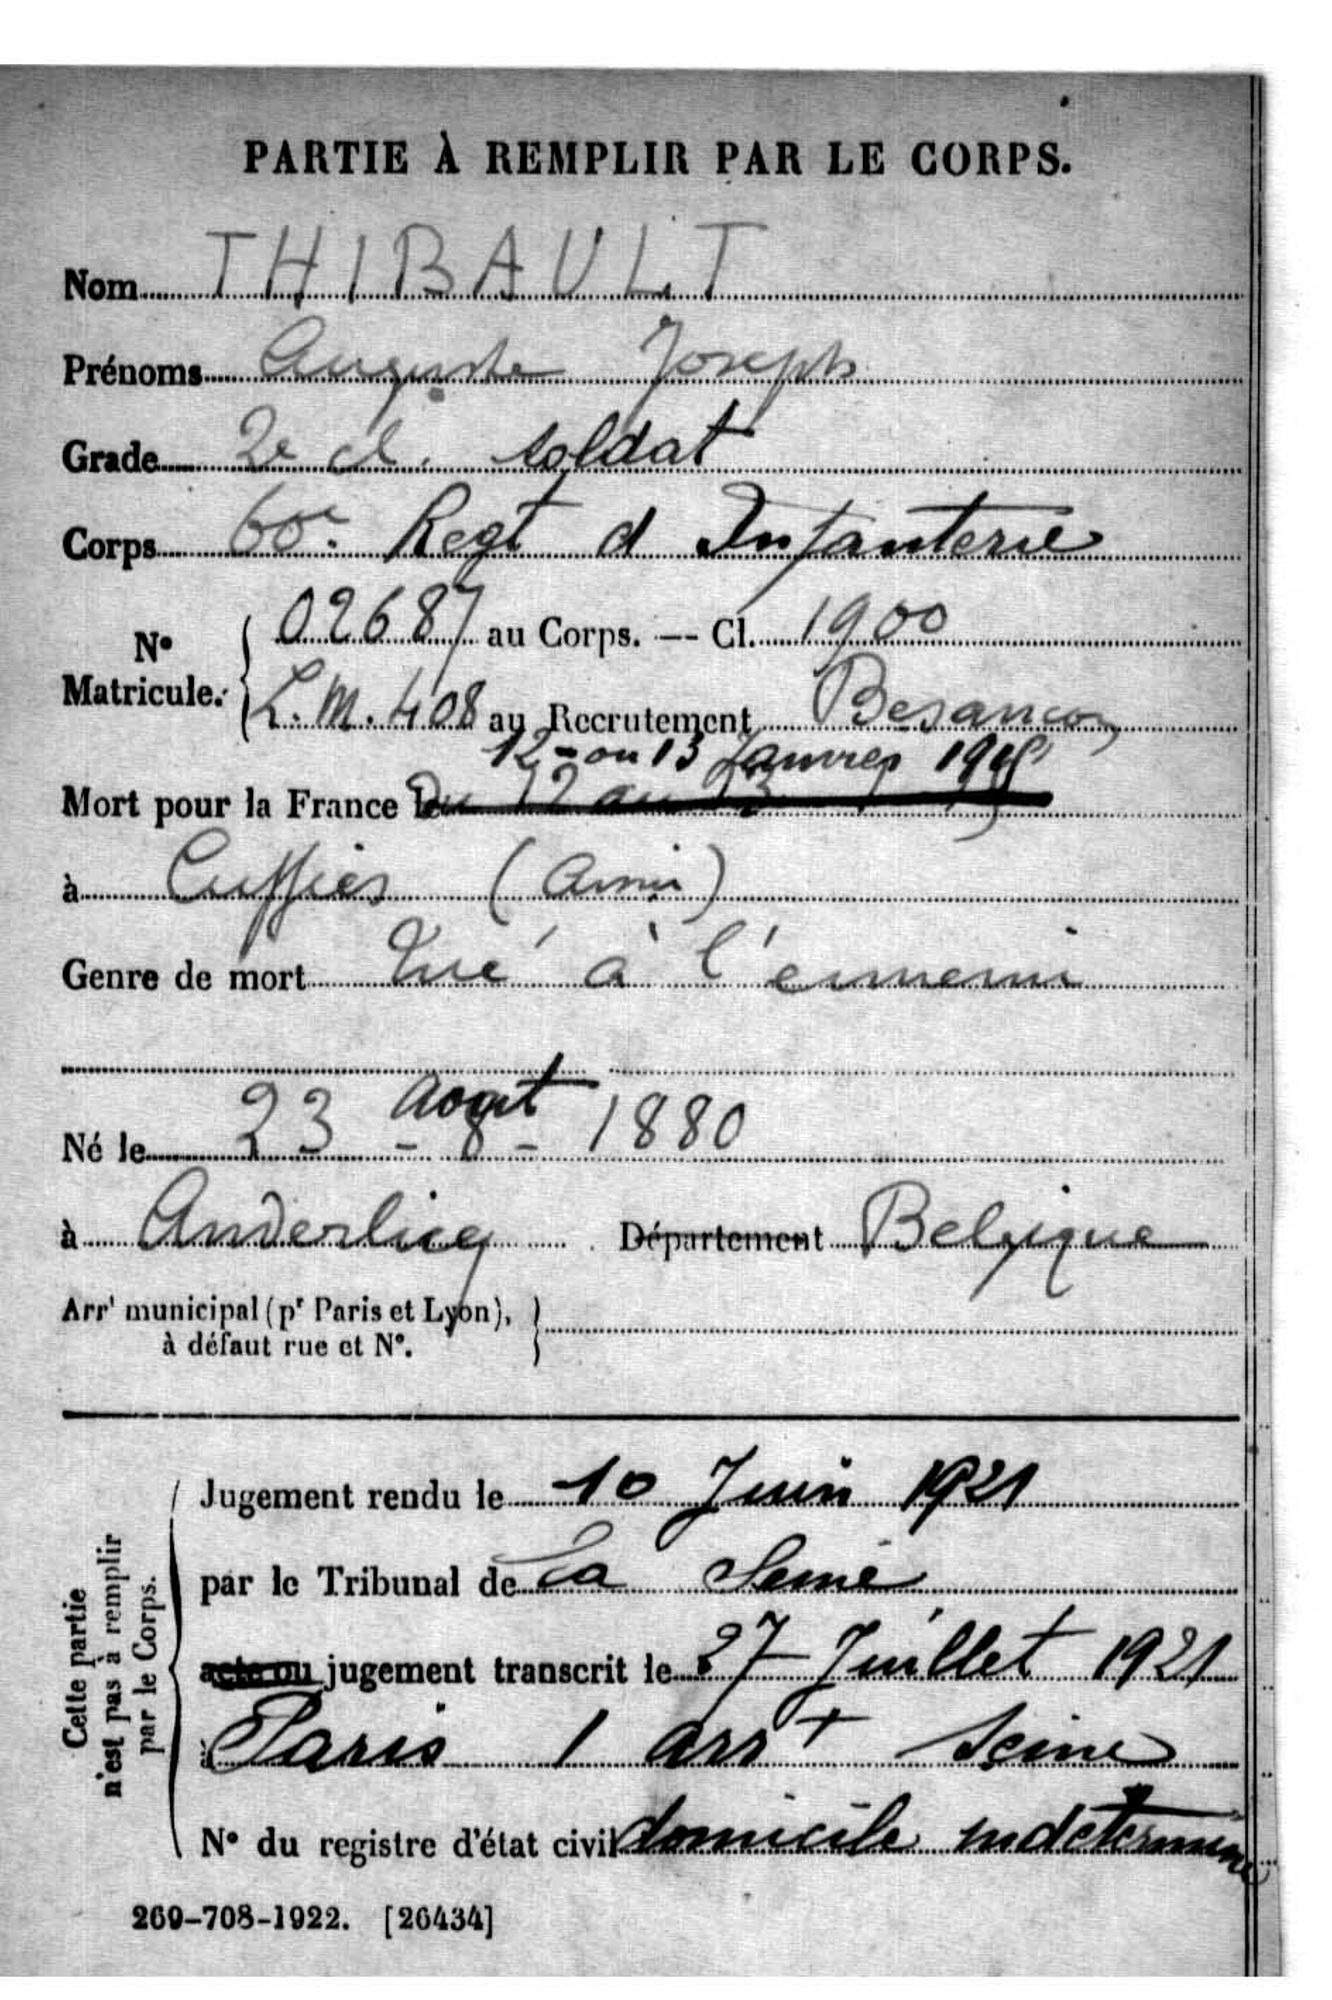 PARTIE À REMPLIR PAR LE CORPS.
Nom THIBAULT
Prénoms Auguste Joseph
Grade 2e cl. soldat
Corps 60e Regt d Infanterie
N° Matricule. 02687 au Corps. — Cl. 1900
L.M. 408 au Recrutement Besançon
12 - ou 13 Janvier 1915
Mort pour la France le Du 12 au 13
à Cuffies (Aisne)
Genre de mort Tué à l'ennemi
Août
Né le 23 - 8 - 1880
à Anderlicq Département Belgique
Arrt municipal (pr Paris et Lyon),
à défaut rue et N°.
Cette partie
n'est pas à remplir
par le Corps.
Jugement rendu le 10 Juin 1921
par le Tribunal de La Seine
acte ou jugement transcrit le 27 Juillet 1921
à Paris 1 arrt Seine
N° du registre d'état civil domicile indéterminé
269-708-1922. [26434]